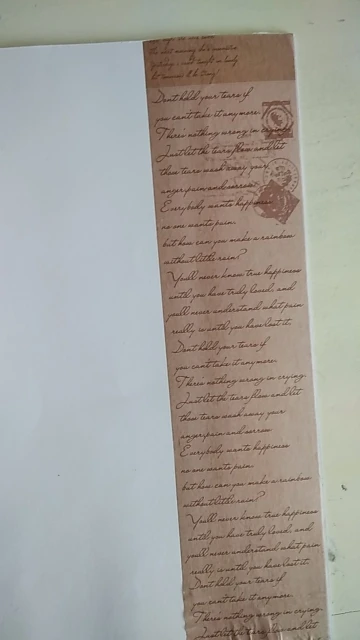 Don't hold your tears if
you can't take it anymore.
There's nothing wrong in crying.
Just let the tears flow and let
those tears wash away your
anger, pain and sorrow.
Everybody wants happiness
no one wants pain.
but how can you make a rainbow
without little rain?
You'll never know true happiness
until you have truly loved, and
you'll never understand what pain
really is until you have lost it.
Don't hold your tears if
you can't take it anymore.
There's nothing wrong in crying.
Just let the tears flow and let
those tears wash away your
anger, pain and sorrow.
Everybody wants happiness
no one wants pain.
but how can you make a rainbow
without little rain?
You'll never know true happiness
until you have truly loved, and
you'll never understand what pain
really is until you have lost it.
Don't hold your tears if
you can't take it anymore.
There's nothing wrong in crying.
Just let the tears flow and let